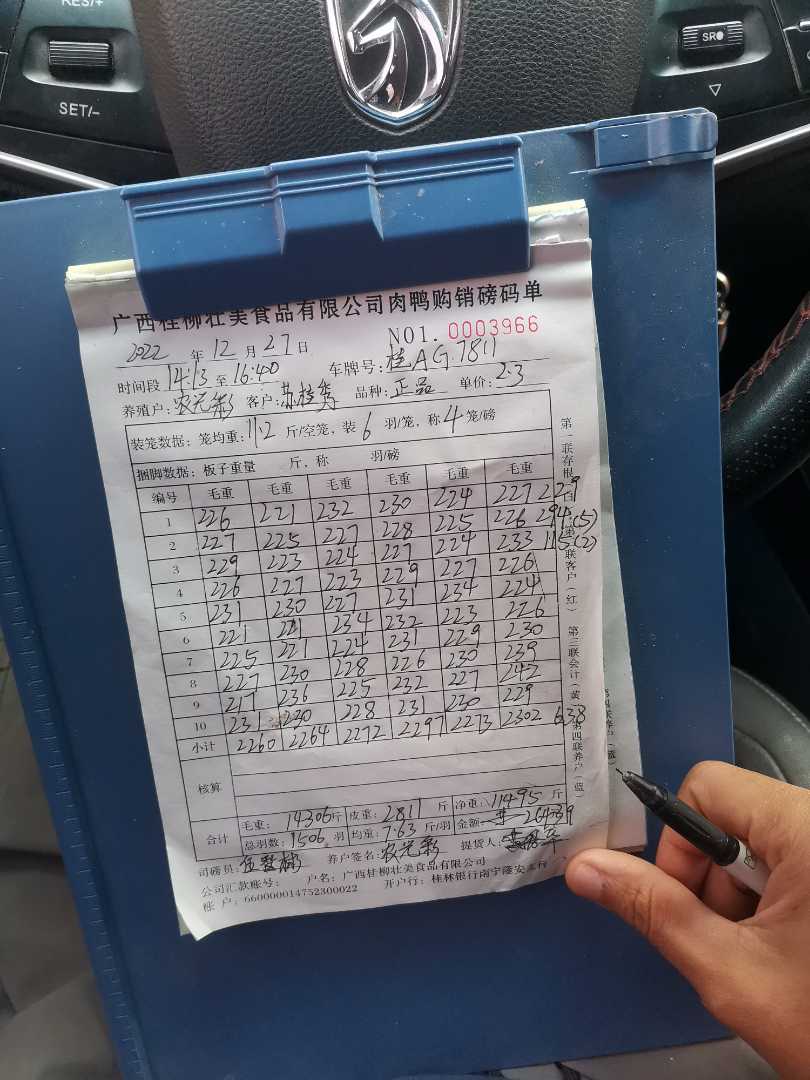 RES/+
SET/−
SRC
广西桂柳壮美食品有限公司肉鸭购销磅码单
2022 年 12 月 27 日 NO1. 0003966
时间段 14:13 至 16:40 车牌号: 桂AG7811
养殖户: 农光彩 客户: 苏桂秀 品种: 正品 单价: 2.3
装笼数据: 笼均重: 11.2 斤/空笼, 装 6 羽/笼, 称 4 笼/磅
捆脚数据: 板子重量 斤, 称 羽/磅
编号 毛重 毛重 毛重 毛重 毛重 毛重
1 226 221 232 230 224 227 229
2 227 225 227 228 225 226 294(5)
3 229 223 224 227 224 233 115(2)
4 226 227 223 229 227 226
5 231 230 227 231 234 224
6 221 221 234 232 223 226
7 225 221 224 231 229 230
8 227 230 228 226 230 239
9 217 236 225 232 227 242
10 231 230 228 231 230 229
小计 2260 2264 2272 2297 2273 2302 638
核算
合计 毛重: 14306 斤 皮重: 2811 斤 净重: 11495 斤
总羽数: 1506 羽 均重: 7.63 斤/羽 金额: 26439
司磅员: 养户签名: 农光彩 提货人:
公司汇款账号: 户名: 广西桂柳壮美食品有限公司
账 户: 660000014752300022 开户行: 桂林银行南宁隆安支行
第一联存根(白) 第二联客户(红) 第三联会计(黄) 第四联养户(蓝)